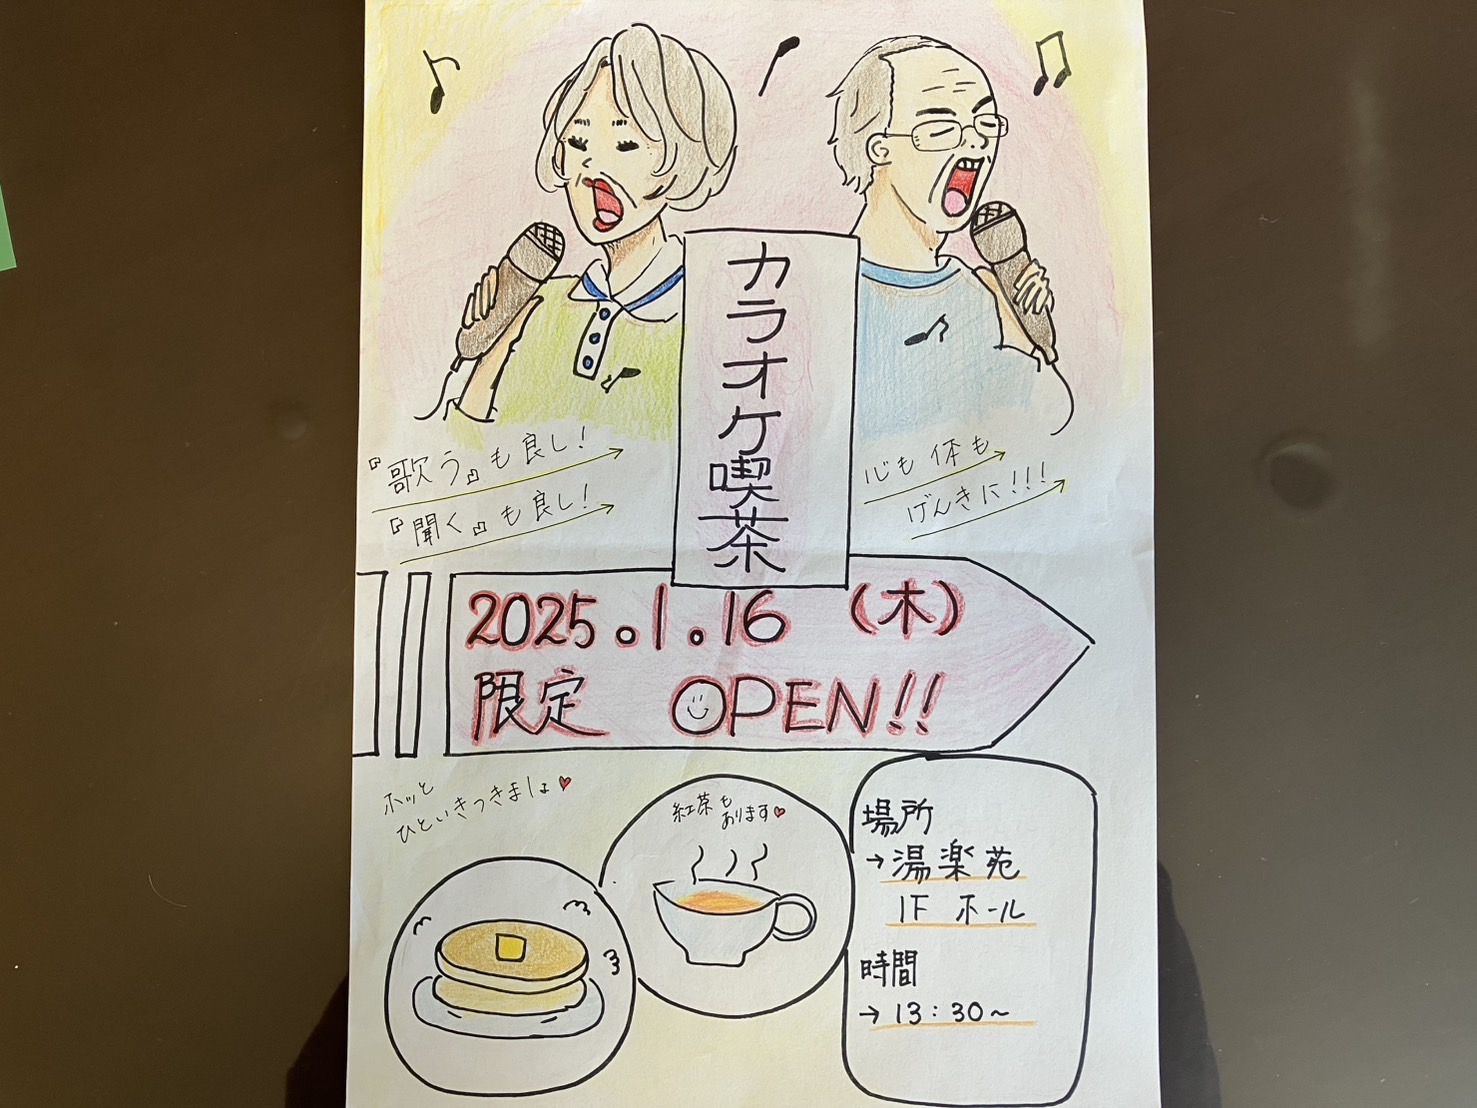 カラオケ喫茶
『歌う』も良し!
『聞く』も良し!
心も体も
げんきに!!!
2025.1.16 (木)
限定 OPEN!!
ホッと
ひといきつきましょ♥
紅茶も
あります♥
場所
→湯楽苑
1F ホール
時間
→13:30~